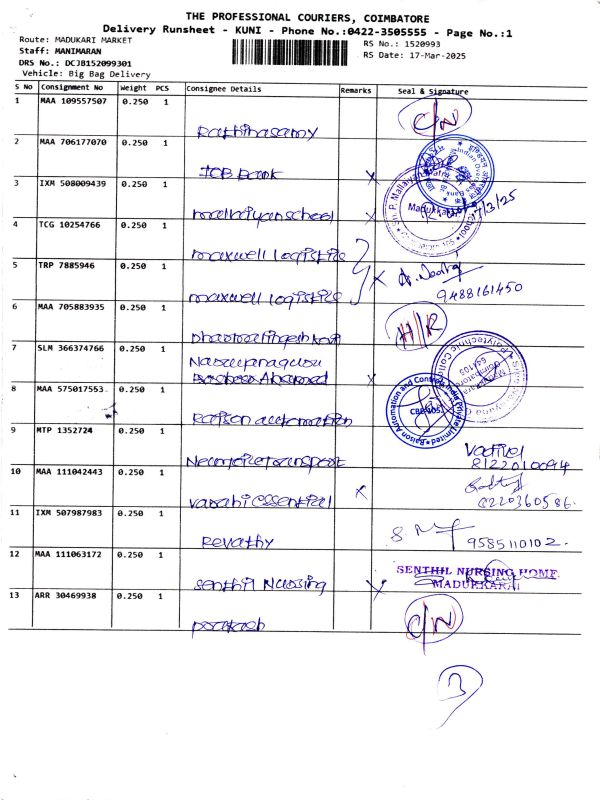 THE PROFESSIONAL COURIERS, COIMBATORE
Delivery Runsheet - KUNI - Phone No.:0422-3505555 - Page No.:1
Route: MADUKARI MARKET
RS No.: 1520993
Staff: MANIMARAN
RS Date: 17-Mar-2025
DRS No.: DCJB152099301
Vehicle: Big Bag Delivery
S No Consignment No Weight PCS Consignee Details Remarks Seal & Signature
1 MAA 109557507 0.250 1 Rathinasamy C/N
2 MAA 706177070 0.250 1 IOB Bank x
3 IXM 508009439 0.250 1 malliaiyan school x 17/3/25
4 TCG 10254766 0.250 1 maxwell logistic
5 TRP 7885946 0.250 1 maxwell logistic x
9488161450
6 MAA 705883935 0.250 1 H/R
7 SLM 366374766 0.250 1 x
8 MAA 575017553 0.250 1 Raison automation
9 MTP 1352724 0.250 1 Vadivel
8122010094
10 MAA 111042443 0.250 1 varahi essential x
8220360586.
11 IXM 507987983 0.250 1 Revathy
9585110102.
12 MAA 111063172 0.250 1 senthil Nursing x
SENTHIL NURSING HOME
MADUKKARAI
13 ARR 30469938 0.250 1 prakash C/N